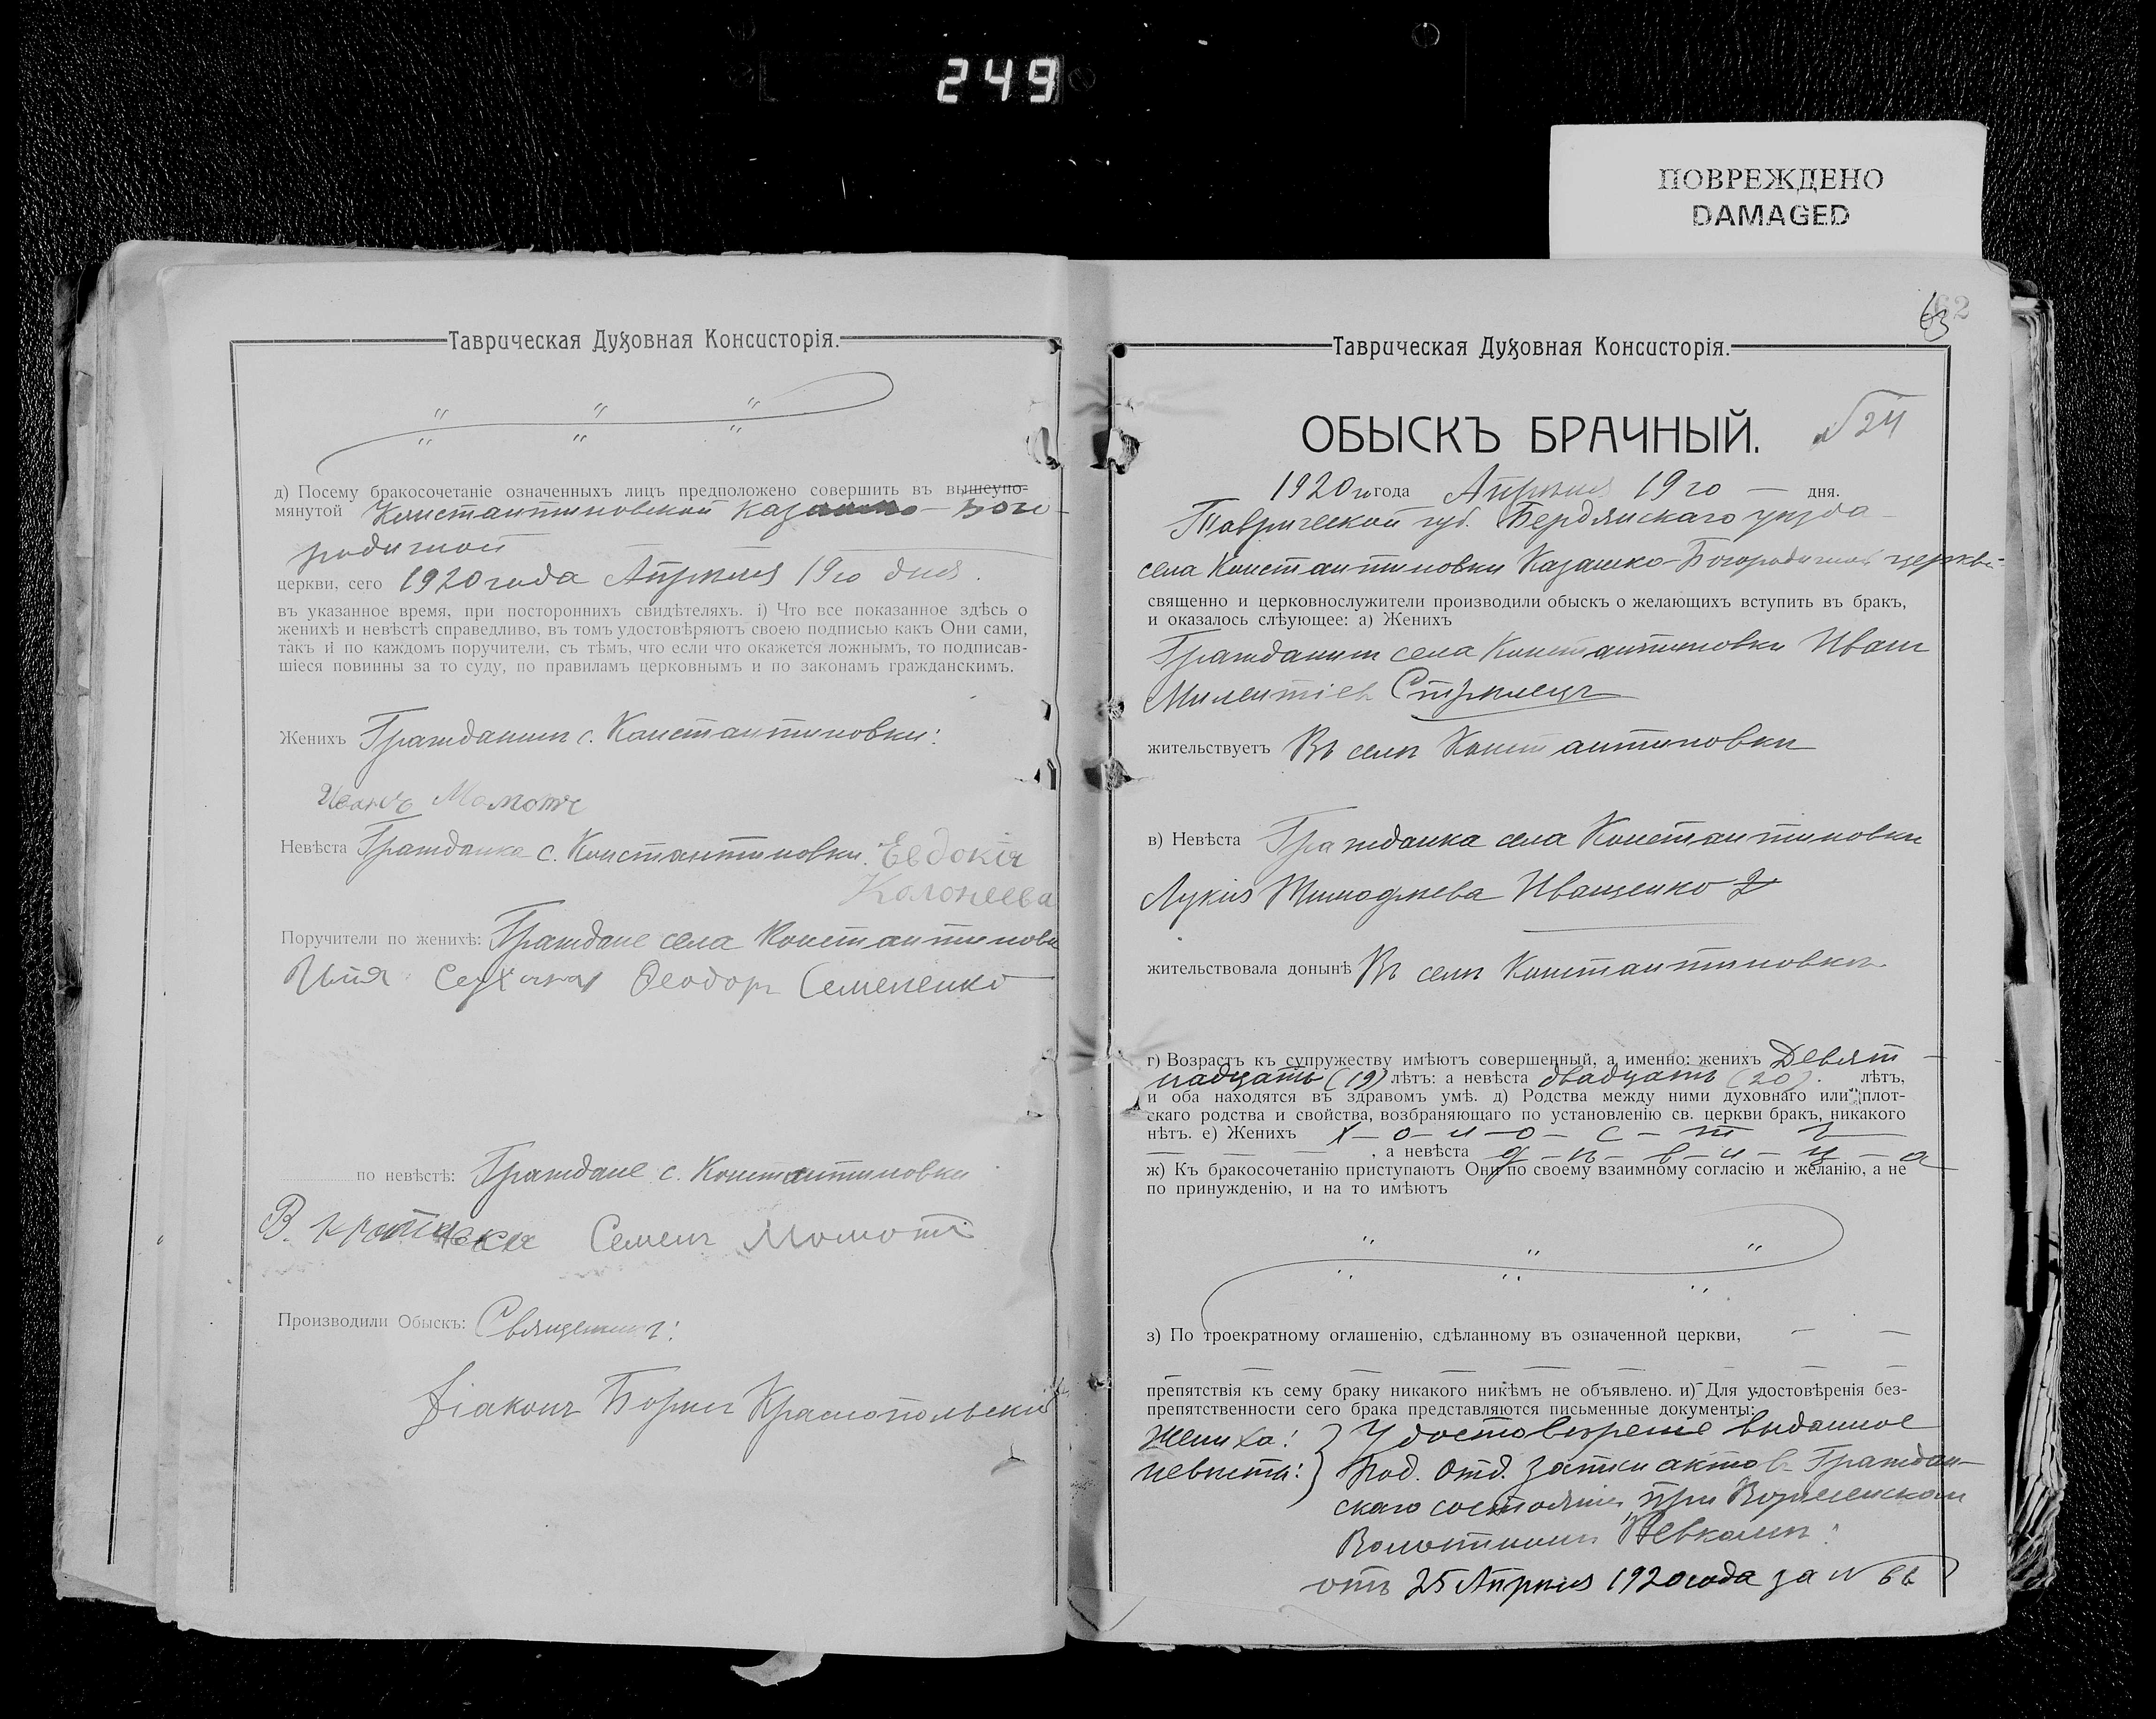 249
ПОВРЕЖДЕНО
DAMAGED
Таврическая Духовная Консисторія.
д) Посему бракосочетаніе означенныхъ лицъ предположено совершить въ вышеупо-
мянутой Константиновской Казанско-Бого-
родичной
церкви, сего 1920 года Апрѣля 19го дня.
въ указанное время, при постороннихъ свидѣтеляхъ. і) Что все показанное здѣсь о
женихѣ и невѣстѣ справедливо, въ томъ удостовѣряютъ своею подписью какъ Они сами,
такъ и по каждомъ поручители, съ тѣмъ, что если что окажется ложнымъ, то подписав-
шіеся повинны за то суду, по правиламъ церковнымъ и по законамъ гражданскимъ.
Женихъ Гражданин с. Константиновки:
Иванъ Момотъ
Невѣста Гражданка с. Константиновки. Евдокія
Поручители по женихѣ: Граждане села Константиновки
Илья Феодоръ Семененко
по невѣстѣ: Граждане с. Константиновки
В. Семенъ Момотъ
Производили Обыскъ: Священникъ:
Діаконъ Борисъ Краснопольскій
62
63
Таврическая Духовная Консисторія.
ОБЫСКЪ БРАЧНЫЙ. №24
1920го года Апрѣля 19го — дня.
Таврической губ. Бердянскаго уѣзда
села Константиновки Казанско-Богородичной церкви
священно и церковнослужители производили обыскъ о желающихъ вступить въ бракъ,
и оказалось слѣующее: а) Женихъ
Гражданин села Константиновки Иван
Милентіев Стрѣлецъ
жительствуетъ Въ селѣ Константиновки
в) Невѣста Гражданка села Константиновки
Лукія Тимофѣева Иващенко
жительствовала донынѣ Въ селѣ Константиновкѣ
г) Возрастъ къ супружеству имѣютъ совершенный, а именно: женихъ Девят-
надцать (19) лѣтъ: а невѣста двадцать (20). лѣтъ,
и оба находятся въ здравомъ умѣ. д) Родства между ними духовнаго или плот-
скаго родства и свойства, возбраняющаго по установленію св. церкви бракъ, никакого
нѣтъ. е) Женихъ х-о-л-о-с-т-ъ
, а невѣста д-ѣ-в-и-ц-а
ж) Къ бракосочетанію приступаютъ Они по своему взаимному согласію и желанію, а не
по принужденію, и на то имѣютъ
з) По троекратному оглашенію, сдѣланному въ означенной церкви,
препятствія къ сему браку никакого никѣмъ не объявлено. и) Для удостовѣренія без-
препятственности сего брака представляются письменные документы:
Жениха: } Удостовѣреніе выданное
невѣсты: } Под. Отд. записи актов Граждан-
скаго состоянія при
Волостномъ Ревкомѣ:
отъ 25 Апрѣля 1920 года за № 66